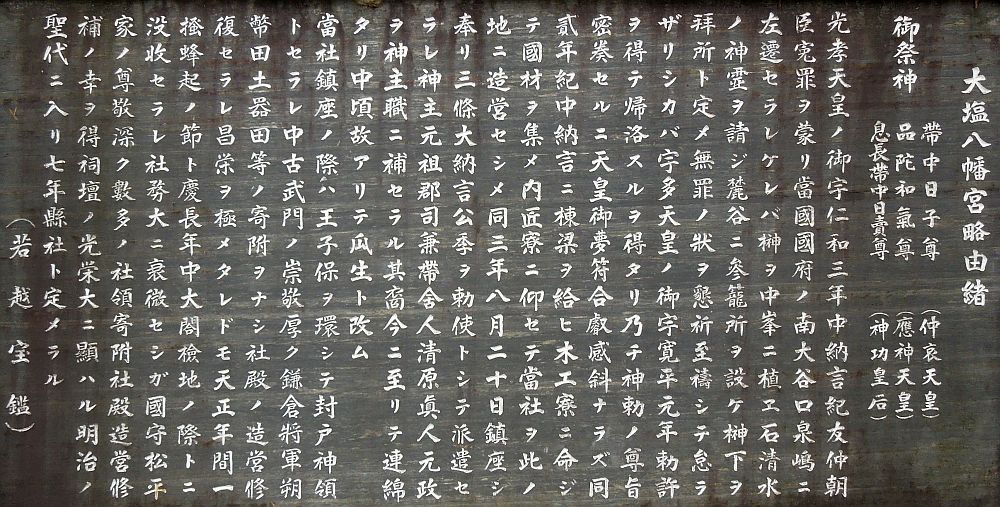 大塩八幡宮略由緒
御祭神
帶中日子尊 (仲哀天皇)
品陀和氣尊 (應神天皇)
息長帶中日賣尊 (神功皇后)
光孝天皇ノ御宇仁和三年中納言紀友仲朝
臣寃罪ヲ蒙リ當國國府ノ南大谷口泉嶋ニ
左遷セラレケレバ榊ヲ中峯ニ植エ石清水
ノ神霊ヲ請ジ麓谷ニ參籠所ヲ設ケ榊下ヲ
拜所ト定メ無罪ノ狀ヲ懇祈至禱シテ怠ラ
ザリシカバ宇多天皇ノ御宇寛平元年勅許
ヲ得テ帰洛スルヲ得タリ乃チ神勅ノ尊旨
密奏セルニ天皇御夢符合叡感斜ナラズ同
貳年紀中納言ニ棟梁ヲ給ヒ木工寮ニ命ジ
テ國材ヲ集メ内匠寮ニ仰セテ當社ヲ此ノ
地ニ造営セシメ同三年八月二十日鎮座シ
奉リ三條大納言公季ヲ勅使トシテ派遣セ
ラレ神主元祖郡司兼帶舎人清原眞人元政
ヲ神主職ニ補セラル其裔今ニ至リテ連綿
タリ中頃故アリテ瓜生ト改ム
當社鎮座ノ際ハ王子保ヲ環シテ封戸神領
トセラレ中古武門ノ崇敬厚ク鎌倉將軍朔
幣田土器田等ノ寄附ヲナシ社殿ノ造営修
復セラレ昌栄ヲ極メタレドモ天正年間一
揆蜂起ノ節ト慶長年中大閤檢地ノ際トニ
没收セラレ社務大ニ衰微セシガ國守松平
家ノ尊敬深ク數多ノ社領寄附社殿造営修
補ノ幸ヲ得祠壇ノ光栄大ニ顯ハル明治ノ
聖代ニ入リ七年縣社ト定メラル
(若越宝鑑)